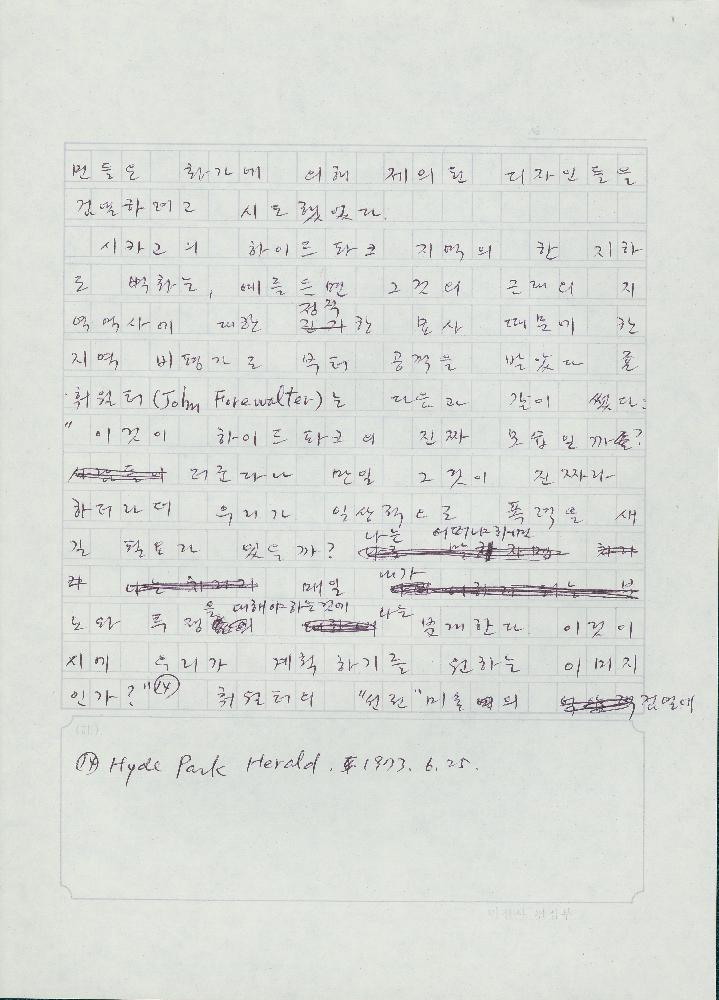 먼들은 화가에 의해 제의된 디자인들을
검열하려고 시도했었다.
시카고의 하이드 파크 지역의 한 지하
도 벽화는, 예를 드면 그것의 근래의 지
역 역사에 대한 정직한 묘사 때문에 한
지역 비평가로 부터 공격을 받았다. 죤
훠월터(John Forewalter)는 다음과 같이 썼다:
"이것이 하이드 파크의 진짜 모습일까?
려준다나 만일 그것이 진짜라
하더라도 우리가 일상적으로 폭력을 새
길 필요가 있을까? 나는 어떠냐하면
매일 내가
노와 특정을 대해야 하는 것에 나는 반대한다. 이것이
시에 우리가 계획하기를 원하는 이미지
인가?"⑭ 훠월터의 "선린"미술 의 검열에
⑭ Hyde Park Herald. 1973. 6. 25.